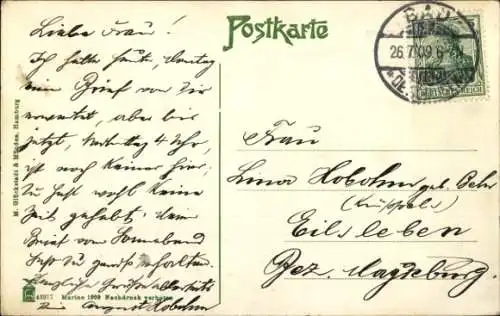 Postkarte
Liebe Frau!
Ich hatte heute, Montag
einen Brief von Dir
erwartet, aber bis
jetzt, Nachmittag 4 Uhr,
ist noch keiner hier,
Du hast wohl keine
Zeit gehabt; dein
Brief vom Sonnabend
hast Du gewiß erhalten.
Herzliche Grüße allerseits
August Hobohm
Frau
Hobohm geb. Behr
Eilsleben
Bez. Magdeburg.
BAD
26.7.09
M. Glückstadt & Münden, Hamburg
Marine 1909 Nachdruck verboten